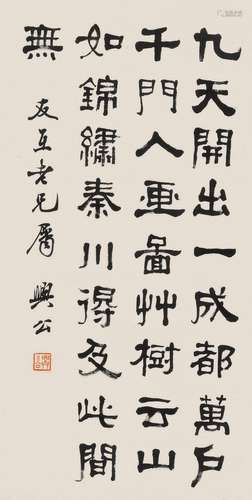 九天開出一成都萬户
千門入畫圖艸樹云山
如錦繡秦川得及此間
無
友互老兄屬 興公